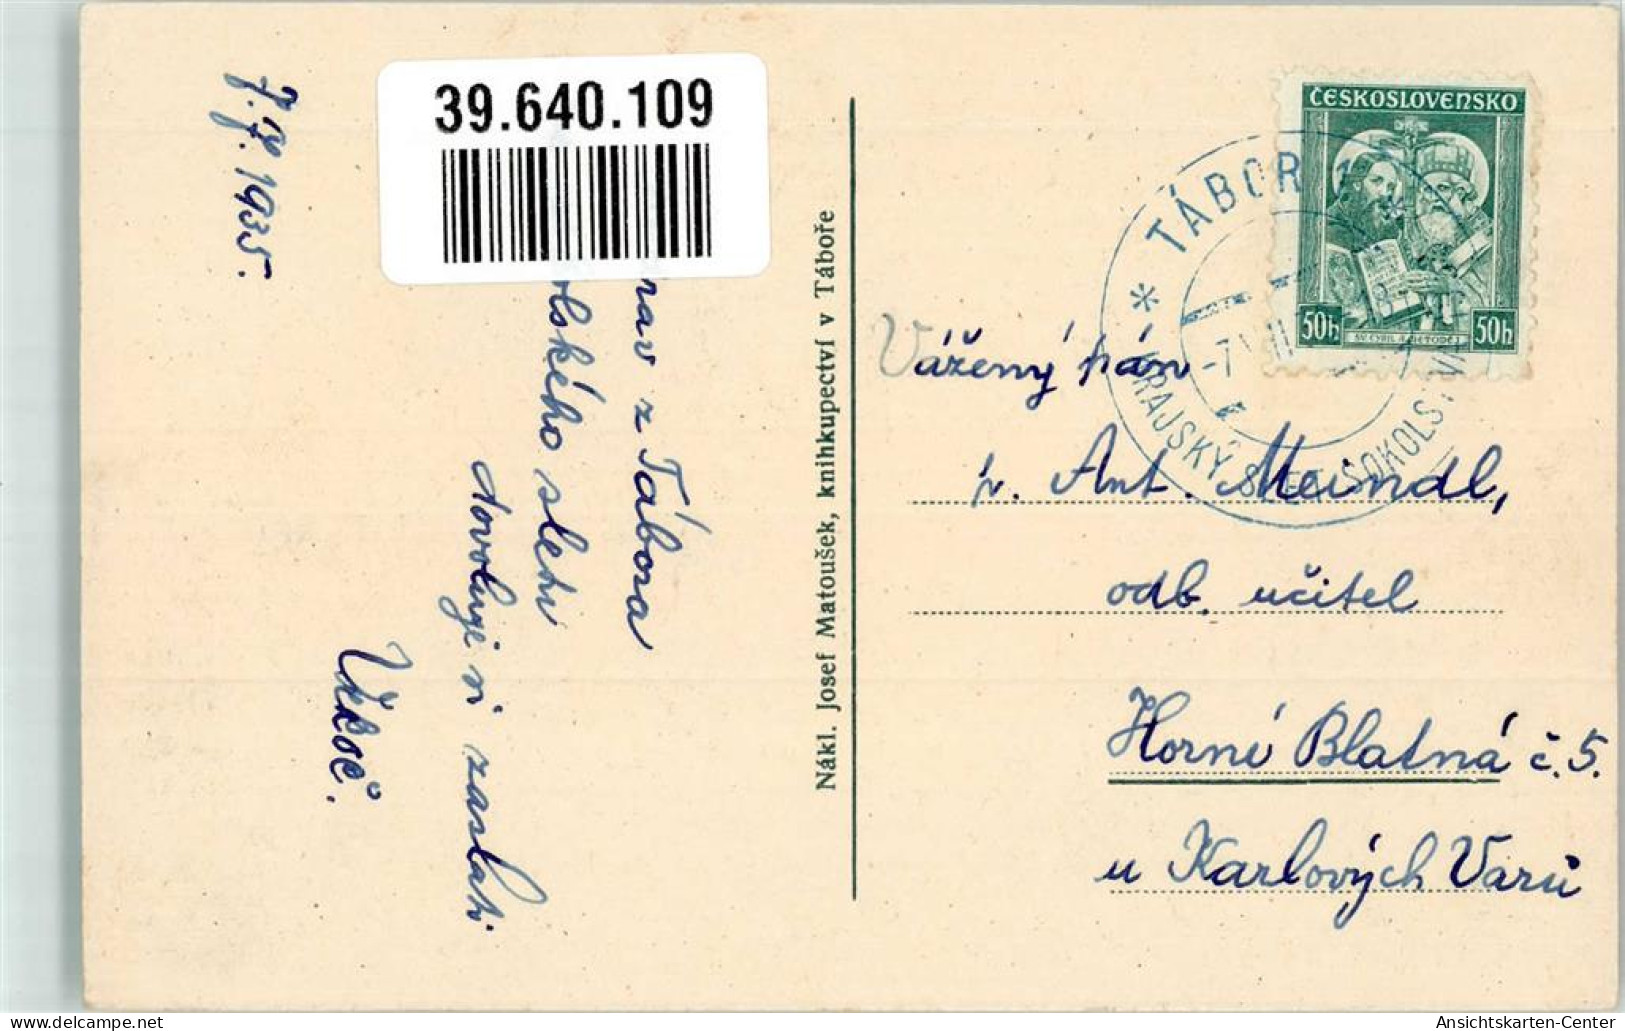 39.640.109
7.7.1935.
z Tábora
sletu
dovoluji si zaslati
Nákl. Josef Matoušek, knihkupectví v Táboře
ČESKOSLOVENSKO
50h
50h
SV. CYRIL A METODĚJ
* TÁBOR
-7 VII
KRAJSKÝ SLET SOKOLSTVA
Vážený pán
p. Ant. Meindl,
odb. učitel
Horní Blatná č. 5.
u Karlových Varů
Ansichtskarten-Center
delcampe.net